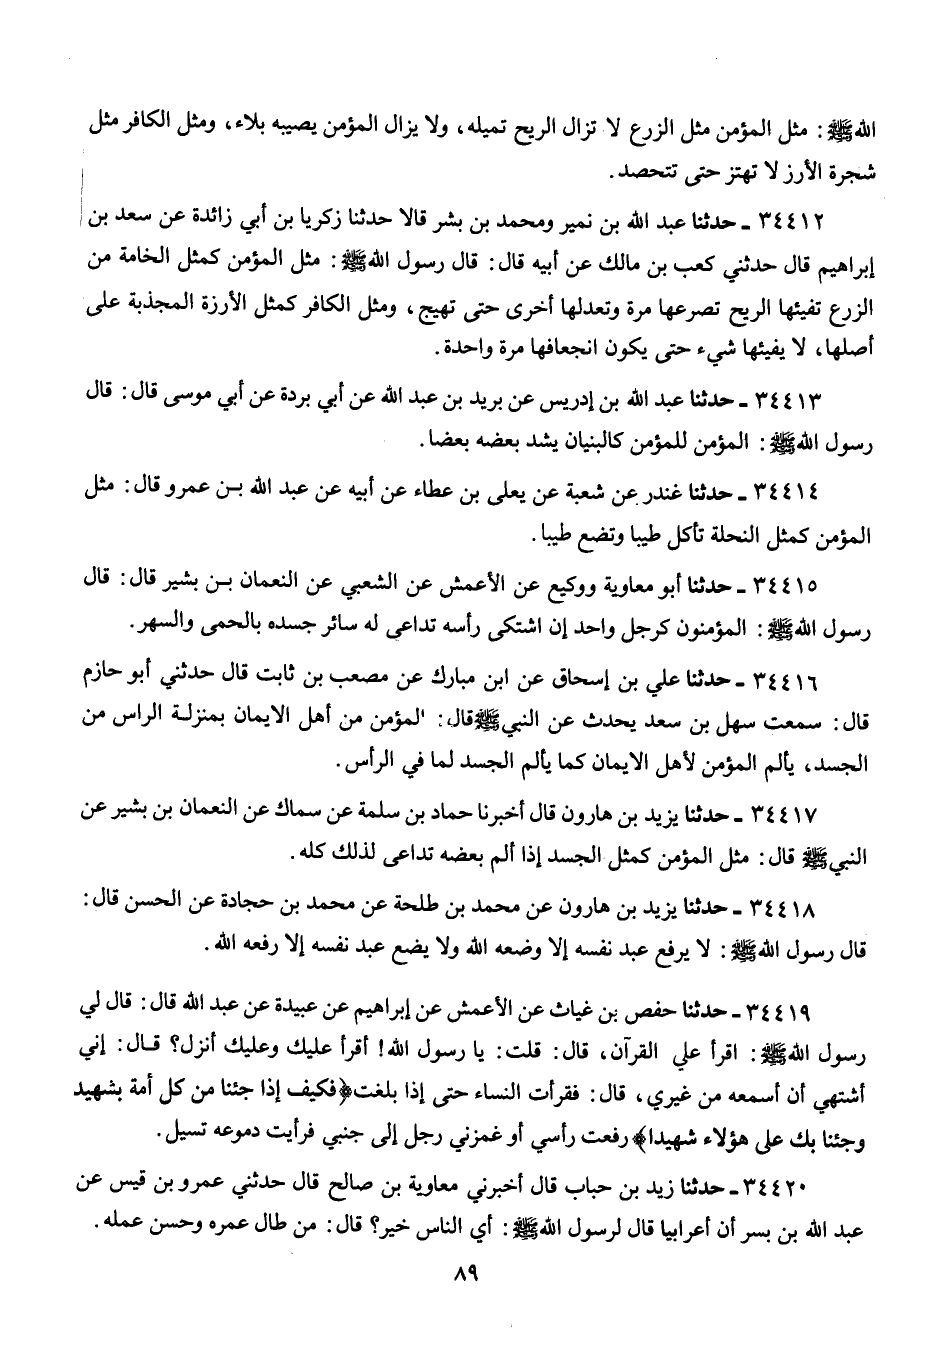 الله ﷺ: مثل المؤمن مثل الزرع لا تزال الريح تميله، ولا يزال المؤمن يصيبه بلاء، ومثل الكافر مثل
شجرة الأرز لا تهتز حتى تتحصد.
٣٤٤١٢ ـ حدثنا عبد الله بن نمير ومحمد بن بشر قالا حدثنا زكريا بن أبي زائدة عن سعد بن
إبراهيم قال حدثني كعب بن مالك عن أبيه قال: قال رسول الله ﷺ: مثل المؤمن كمثل الخامة من
الزرع تفيئها الريح تصرعها مرة وتعدلها أخرى حتى تهيج، ومثل الكافر كمثل الأرزة المجذبة على
أصلها، لا يفيئها شيء حتى يكون انجعافها مرة واحدة.
٣٤٤١٣ ـ حدثنا عبد الله بن إدريس عن بريد بن عبد الله عن أبي بردة عن أبي موسى قال: قال
رسول الله ﷺ: المؤمن للمؤمن كالبنيان يشد بعضه بعضا.
٣٤٤١٤ ـ حدثنا غندر عن شعبة عن يعلى بن عطاء عن أبيه عن عبد الله بـن عمرو قال: مثل
المؤمن كمثل النحلة تأكل طيبا وتضع طيبا.
٣٤٤١٥ ـ حدثنا أبو معاوية ووكيع عن الأعمش عن الشعبي عن النعمان بـن بشير قال: قال
رسول الله ﷺ: المؤمنون كرجل واحد إن اشتكى رأسه تداعى له سائر جسده بالحمى والسهر.
٣٤٤١٦ ـ حدثنا علي بن إسحاق عن ابن مبارك عن مصعب بن ثابت قال حدثني أبو حازم
قال: سمعت سهل بن سعد يحدث عن النبي ﷺ قال: المؤمن من أهل الايمان بمنزلـة الراس من
الجسد، يألم المؤمن لأهل الايمان كما يألم الجسد لما في الرأس.
٣٤٤١٧ ـ حدثنا يزيد بن هارون قال أخبرنا حماد بن سلمة عن سماك عن النعمان بن بشير عن
النبي ﷺ قال: مثل المؤمن كمثل الجسد إذا ألم بعضه تداعى لذلك كله.
٣٤٤١٨ ـ حدثنا يزيد بن هارون عن محمد بن طلحة عن محمد بن حجادة عن الحسن قال:
قال رسول الله ﷺ: لا يرفع عبد نفسه إلا وضعه الله ولا يضع عبد نفسه إلا رفعه الله.
٣٤٤١٩ ـ حدثنا حفص بن غياث عن الأعمش عن إبراهيم عن عبيدة عن عبد الله قال: قال لي
رسول الله ﷺ: اقرأ علي القرآن، قال: قلت: يا رسول الله! أقرأ عليك وعليك أنزل؟ قـال: إني
أشتهي أن أسمعه من غيري، قال: فقرأت النساء حتى إذا بلغت ﴿فكيف إذا جئنا من كل أمة بشهيد
وجئنا بك على هؤلاء شهيدا﴾ رفعت رأسي أو غمزني رجل إلى جنبي فرأيت دموعه تسيل.
٣٤٤٢٠ ـ حدثنا زيد بن حباب قال أخبرني معاوية بن صالح قال حدثني عمرو بن قيس عن
عبد الله بن بسر أن أعرابيا قال لرسول الله ﷺ: أي الناس خير؟ قال: من طال عمره وحسن عمله.
٨٩